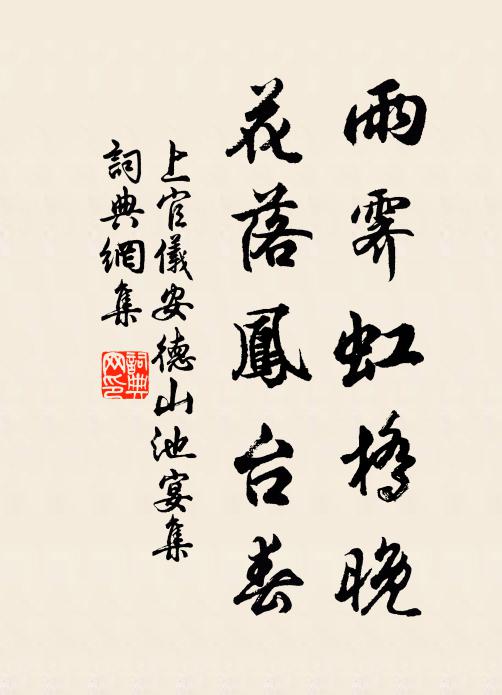 雨霽虹橋晚
花落鳳台春
上官儀安德山池宴集
詞典網集
詞典
网印